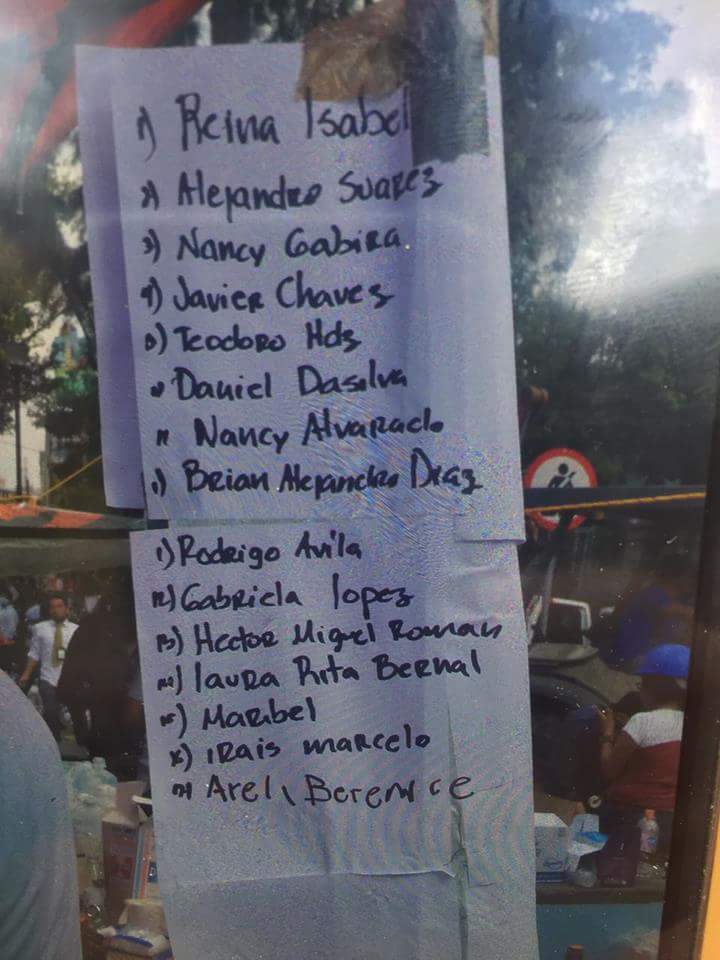 1) Reina Isabel
2) Alejandro Suarez
3) Nancy Gabira
4) Javier Chavez
Teodoro Hdz
Daniel Dasilva
Nancy Alvarado
Brian Alejandro Diaz
1) Rodrigo Avila
12) Gabriela lopez
13) Hector Miguel Roman
14) laura Rita Bernal
15) Maribel
16) irais marcelo
17) Areli Berenice